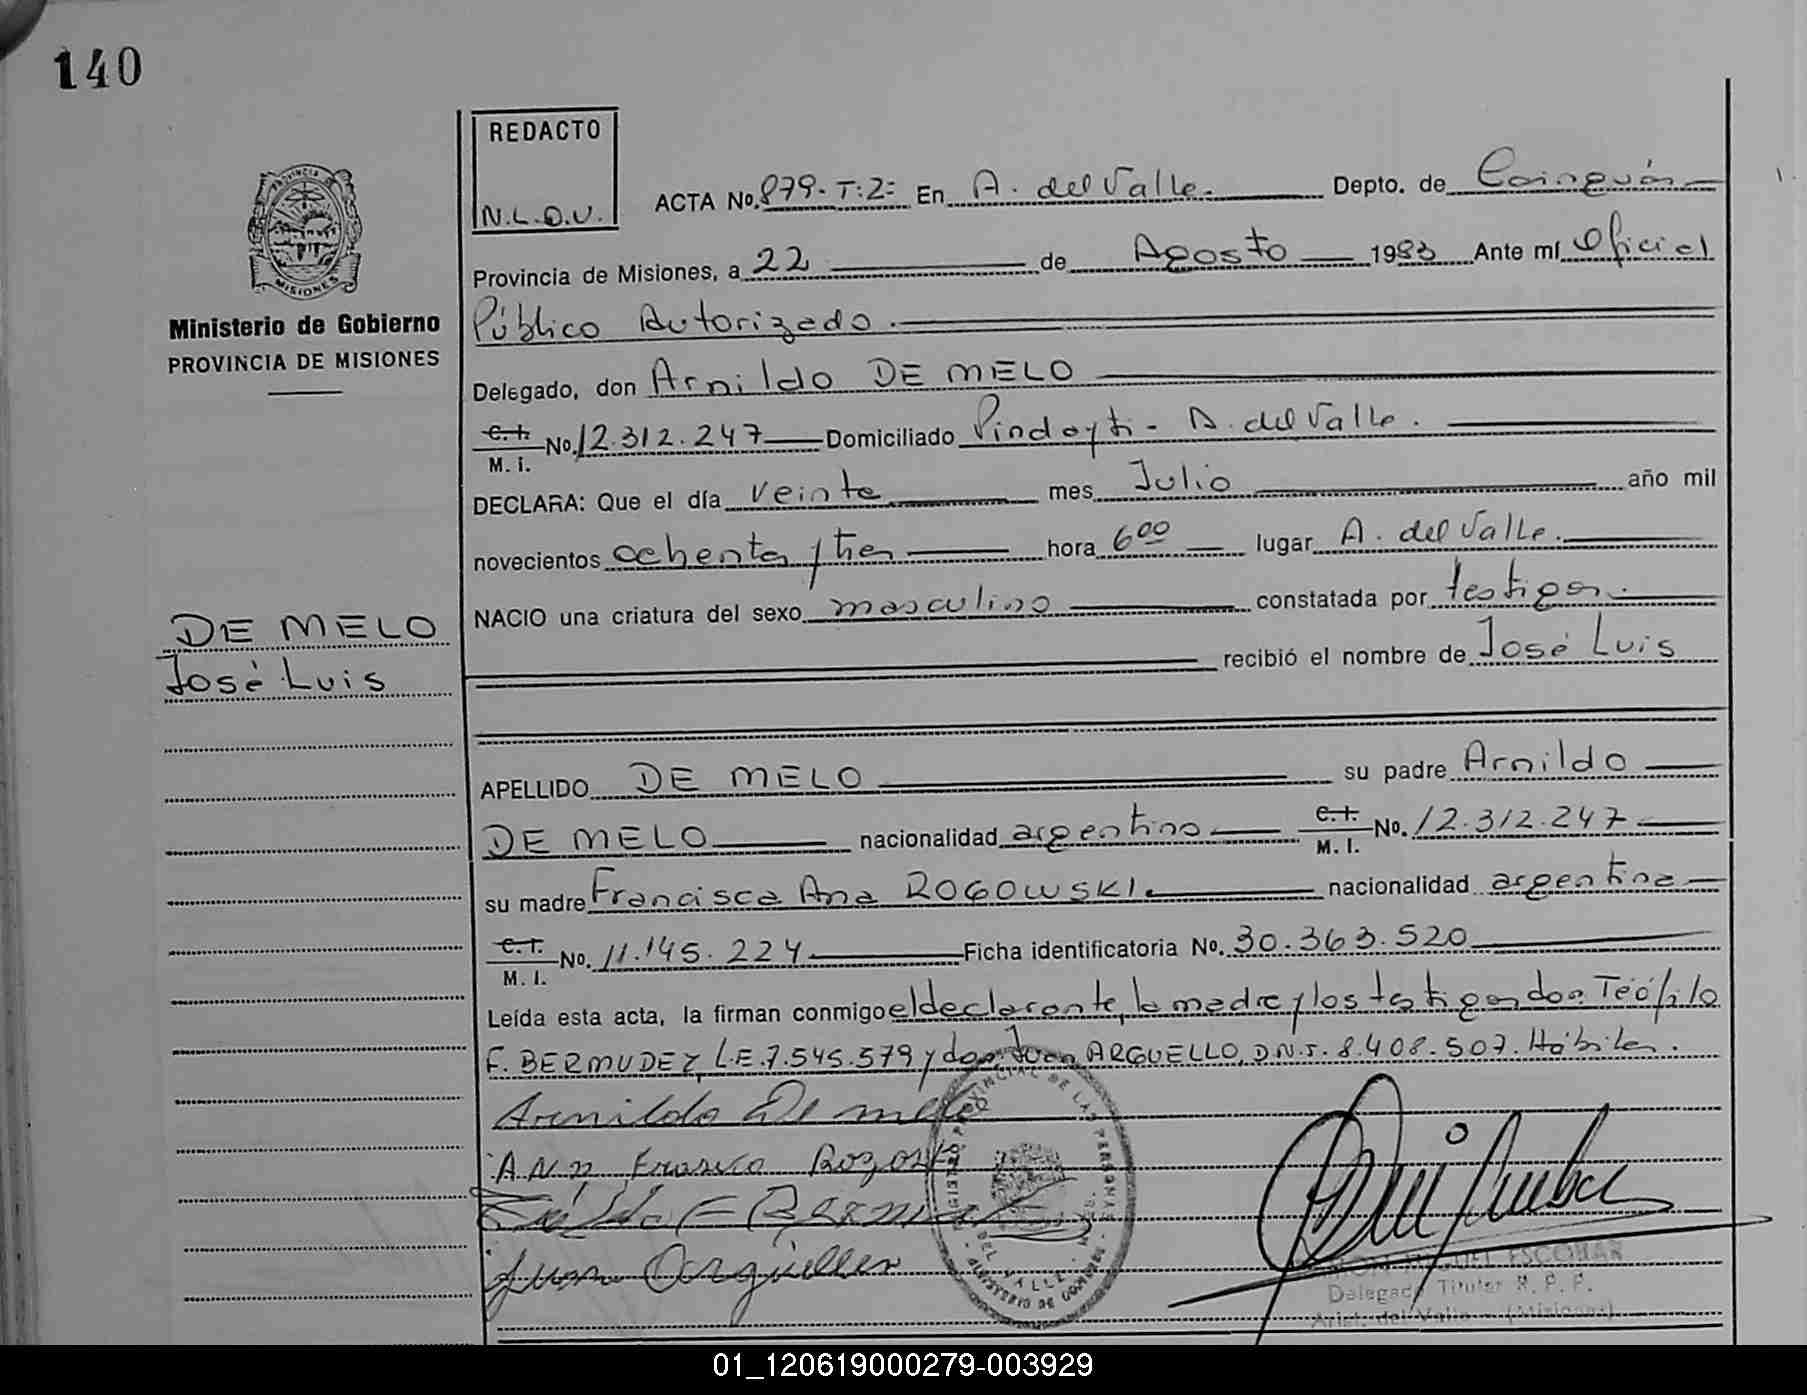 140
REDACTO
N.L.O.V.
ACTA No. 879-T:2= En A. del Valle. Depto. de Cainguás
Provincia de Misiones, a 22 de Agosto 1983 Ante mí Oficial
Público Autorizado.
PROVINCIA DE MISIONES
Ministerio de Gobierno
PROVINCIA DE MISIONES
Delegado, don Arnildo DE MELO
C.I. M. I. No. 12.312.247 Domiciliado Pindayti - A. del Valle.
DECLARA: Que el día veinte mes Julio año mil
novecientos ochenta y tres hora 6 00 lugar A. del Valle.
NACIO una criatura del sexo masculino constatada por testigos.
recibió el nombre de José Luis
DE MELO
José Luis
APELLIDO DE MELO su padre Arnildo
DE MELO nacionalidad argentino C.I. M. I. No. 12.312.247
su madre Francisca Ana ROGOWSKI. nacionalidad argentina
C.I. M. I. No. 11.145.224 Ficha identificatoria No. 30.363.520
Leída esta acta, la firman conmigo el declarante, la madre y los testigos don Teófilo
F. BERMUDEZ, L.E.7.545.579 y don Juan ARGUELLO, D.N.I. 8.408.507. Hábiles.
Arnildo De melo
Juan Argüello
MIGUEL ESCOBAR
Delegado Titular R. P. P.
Arist. del Valle - (Misiones)
01_120619000279-003929